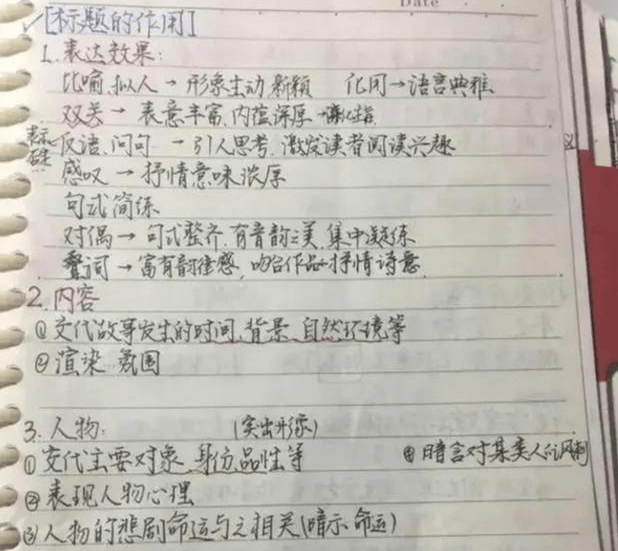 Date
[标题的作用]
1. 表达效果:
比喻、拟人→形象生动新颖 化用→语言典雅
双关→表意丰富,内蕴深厚
反语、问句→引人思考,激发读者阅读兴趣
感叹→抒情意味浓厚
句式简练
对偶→句式整齐,有音韵之美,集中凝练
叠词→富有韵律感,吻合作品抒情诗意
2. 内容
①交代故事发生的时间、背景、自然环境等
②渲染 氛围
3. 人物: (突出形象)
①交代主要对象、身份、品性等 ④暗含对某类人的讽刺
②表现人物心理
③人物的悲剧命运与之相关(暗示命运)